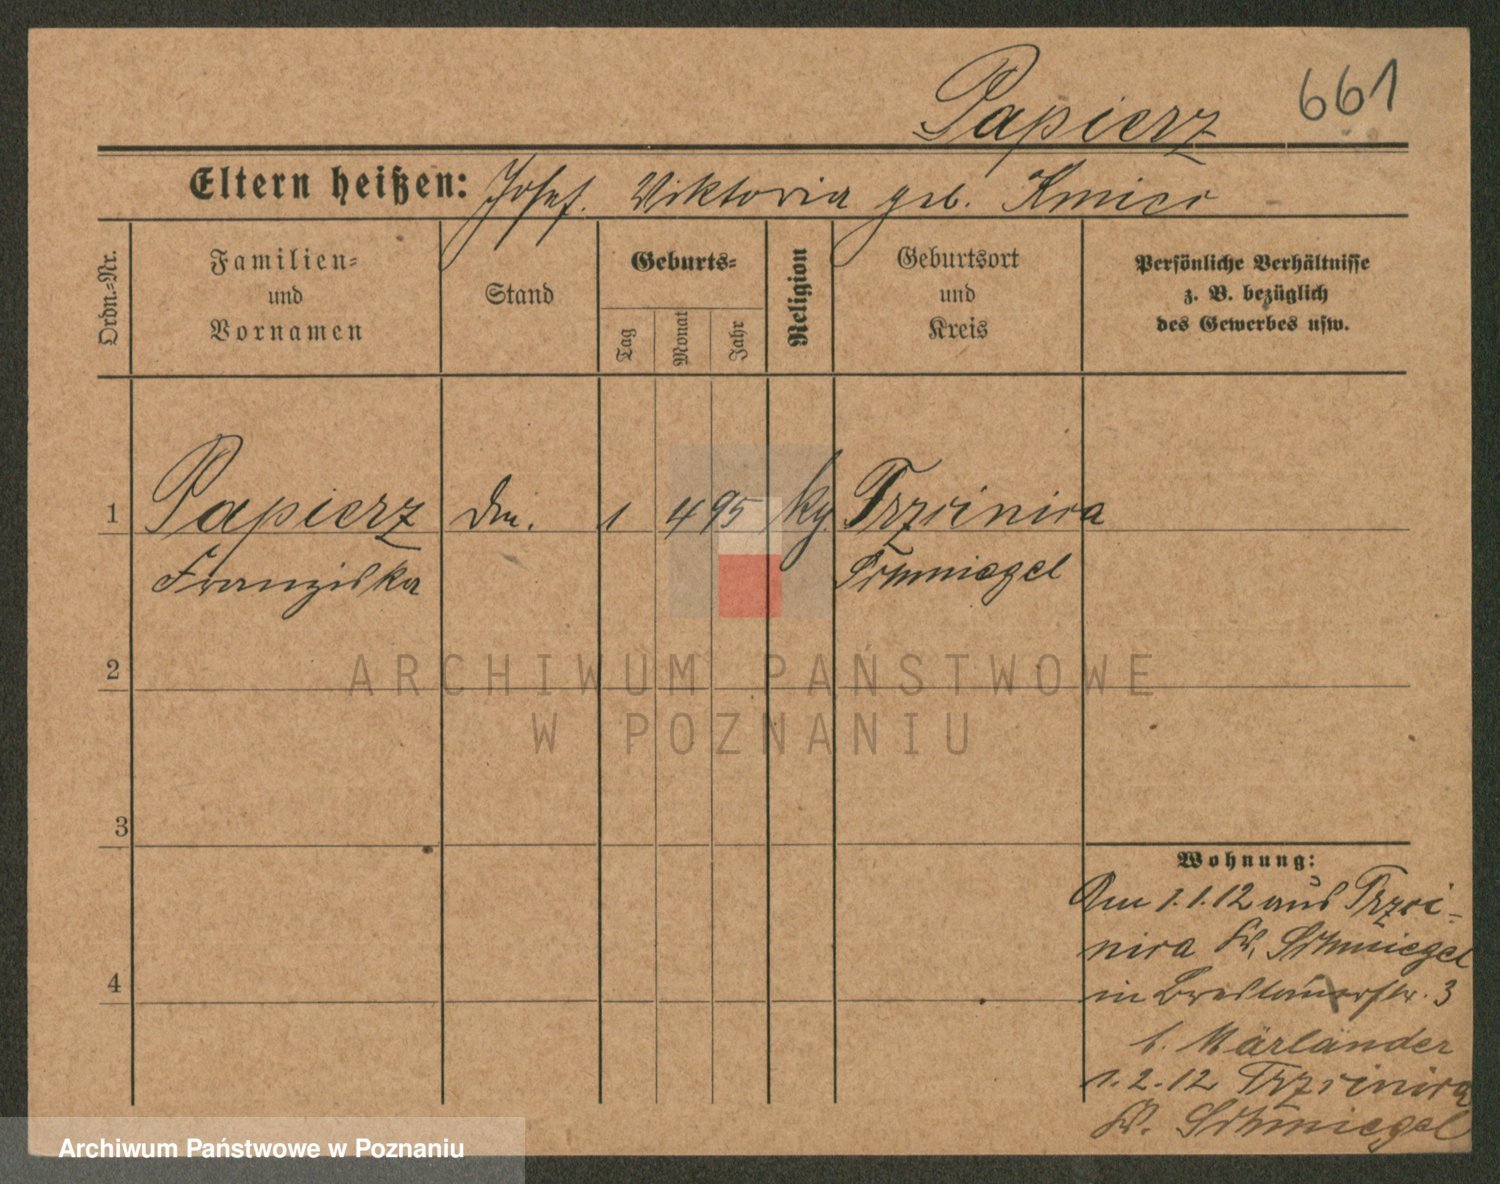 Papierz 661
Eltern heißen: Josef. Viktoria geb. Kmiec
Ordn.-Nr.
Familien-
und
Vornamen
Stand
Geburts-
Tag
Monat
Jahr
Religion
Geburtsort
und
Kreis
Persönliche Verhältnisse
z. B. bezüglich
des Gewerbes usw.
1 Papierz Dm. 1 4 95 kg Trzcinica
Franziska Schmiegel
2
3
4
Wohnung:
Am 1.1.12 aus Trzci-
nica Kr. Schmiegel
in Breslauerstr. 3
b. Märländer
1.2.12 Trzcinica
Kr. Schmiegel
ARCHIWUM PAŃSTWOWE
W POZNANIU
Archiwum Państwowe w Poznaniu